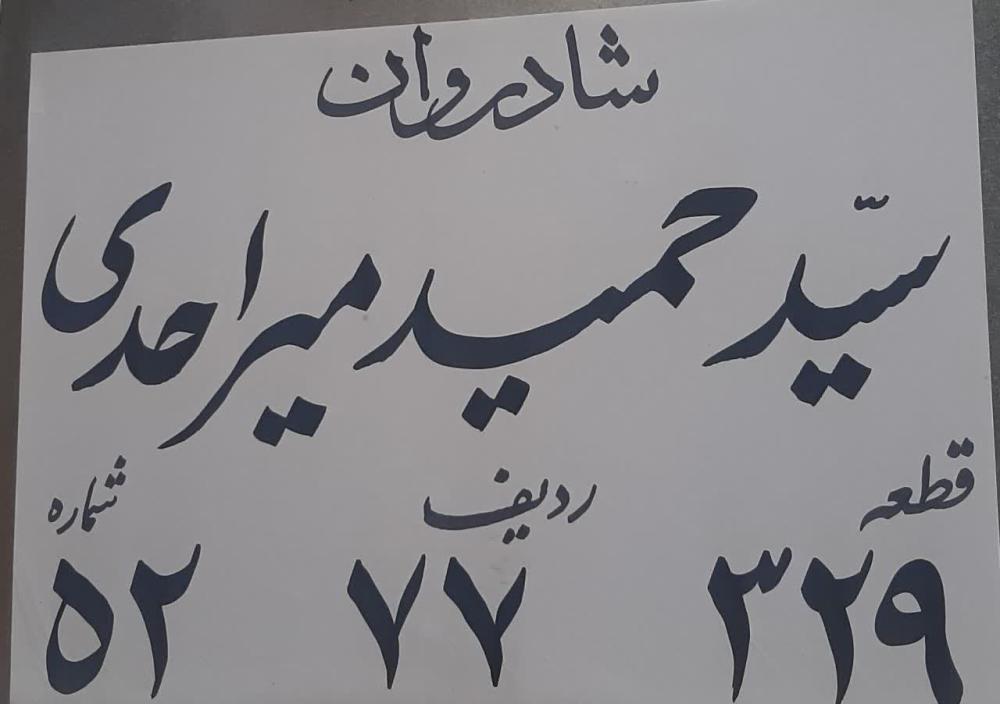 شادروان
سیّد حمید میراحدی
قطعه ردیف شماره
۳۲۹ ۷۷ ۵۲